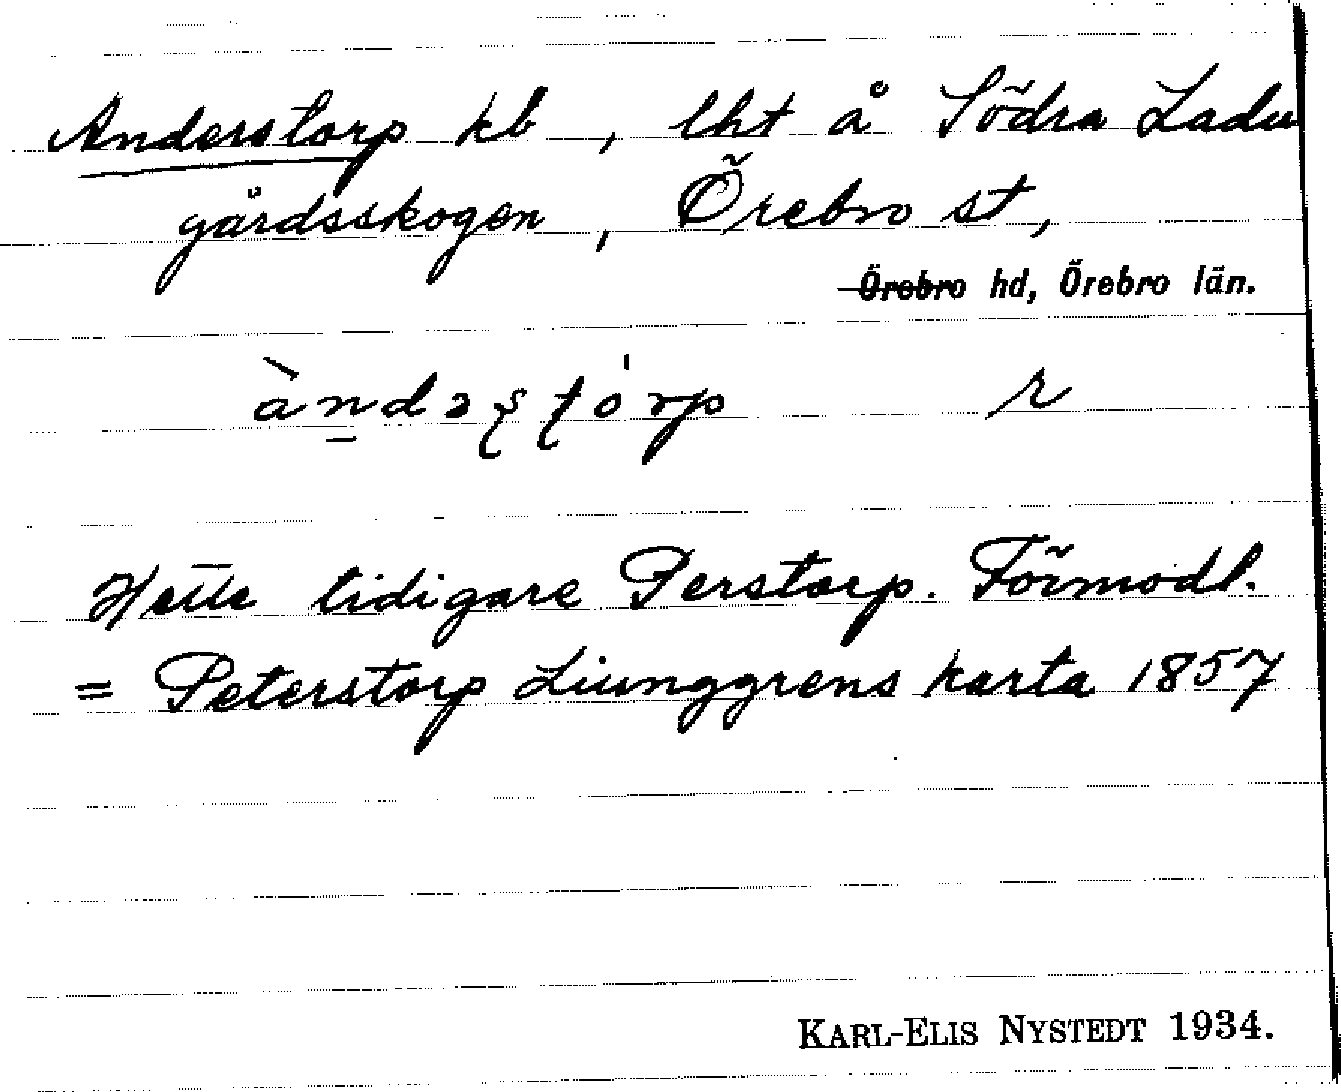 Anderstorp kb, lht å Södra Ladu
gårdsskogen, Örebro st,
Örebro hd, Örebro län.
àndəʂʈórp r
Hette tidigare Perstorp. Förmodl.
= Peterstorp Liunggrens karta 1857
KARL-ELIS NYSTEDT 1934.